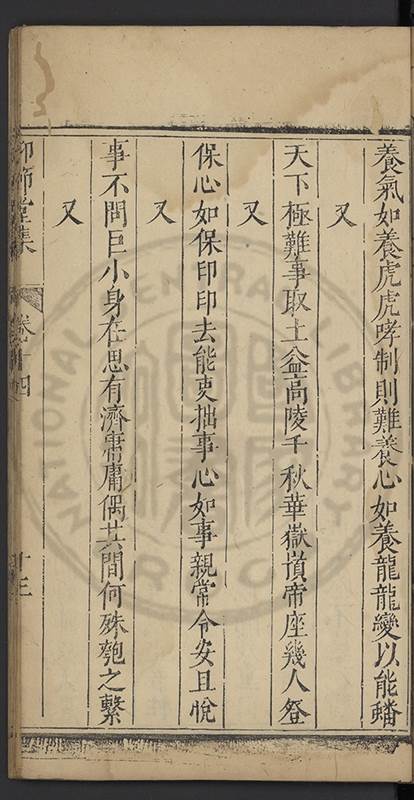 養氣如養虎虎哮制則難養心如養龍龍變以能蟠
又
天下極難事取土益高陵千秋華嶽頂帝座幾人登
又
保心如保印印去能吏拙事心如事親常令安且悅
又
事不問巨小身在思有濟庸庸偶其間何殊匏之繫
又
仰節堂集
卷十四
十三
NATIONAL CENTRAL LIBRARY